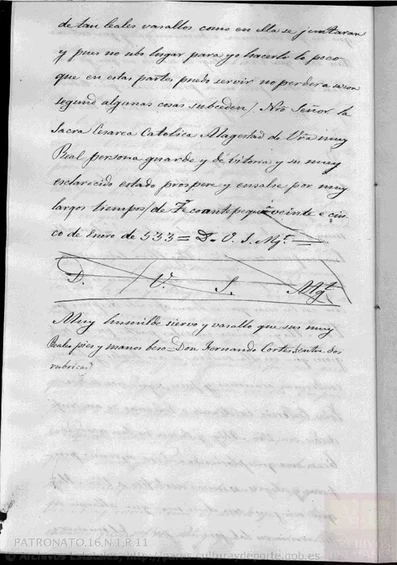 de tan leales vasallos como en ella se juntaran
y pues no ubo lugar para yo hacerlo lo poco
que en estas partes puedo servir no perdera sazon
segund algunas cosas subceden / Nro Señor la
Sacra Cesarea Catolica Magestad de Vra muy
Real persona guarde y dé vitoria y su muy
esclarecido estado prospere y ensalse por muy
largos tiempos / de Tecoantepeque veinte e cin
co de Enero de 533 = D. V. S. Mgt. =
D. / V. / S. Mgt.
Muy humilde siervo y vasallo que sus muy
Reales pies y manos besa Don Fernando Cortes, entre dos
rubricas
PATRONATO,16,N.1,R.11